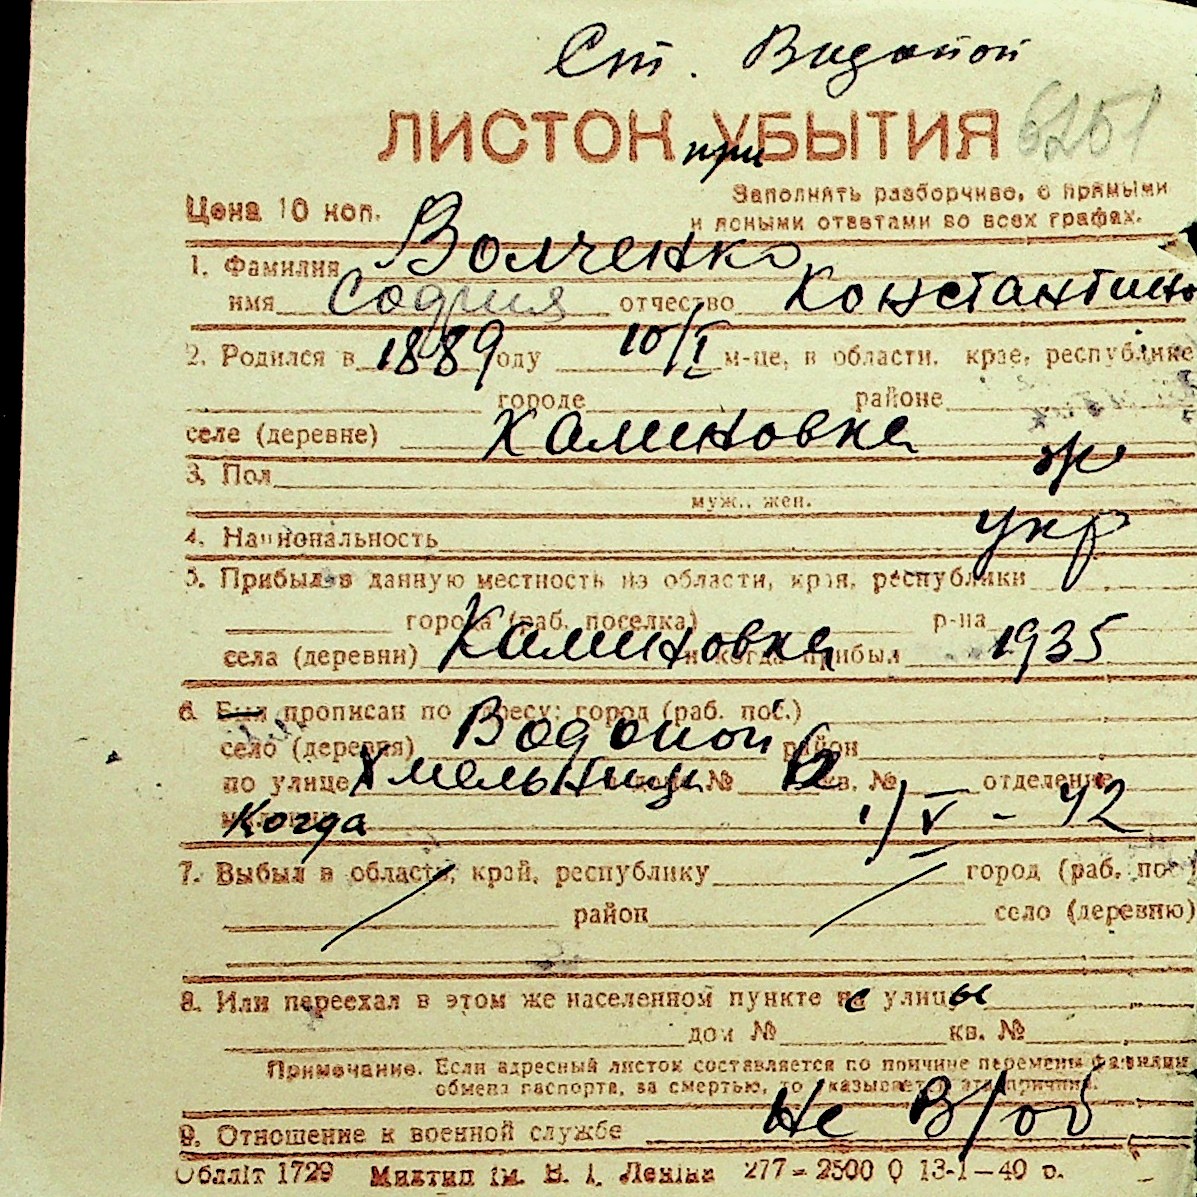 Ст. Водопой
ЛИСТОК при УБЫТИЯ 6251
Цена 10 коп.
Заполнять разборчиво, с прямыми
и ясными ответами во всех графах.
1. Фамилия Волченко
имя София отчество Константино
2. Родился в 1889 году 10/I м-це, в области, крае, республике
городе районе
селе (деревне) Калиновка
3. Пол ж
муж., жен.
4. Национальность укр
5. Прибыл в данную местность из области, края, республики
города (раб. поселка) р-на
села (деревни) Калиновка и когда прибыл 1935
6. Был прописан по адресу: город (раб. пос.)
село (деревня) Водопой район
по улице Хмельницк № 12 кв. № отделение
Когда 1/V - 42
7. Выбыл в область, край, республику город (раб. пос
район село (деревню)
8. Или переехал в этом же населенном пункте с улицы
дом № кв. №
Примечание. Если адресный листок составляется по причине перемены фамилии
обмена паспорта, за смертью, то указывается эта причина.
9. Отношение к военной службе Не в/об
Обллiт 1729 Миктип iм. В. I. Ленiна 277 – 2500 0 13-1–40 о.